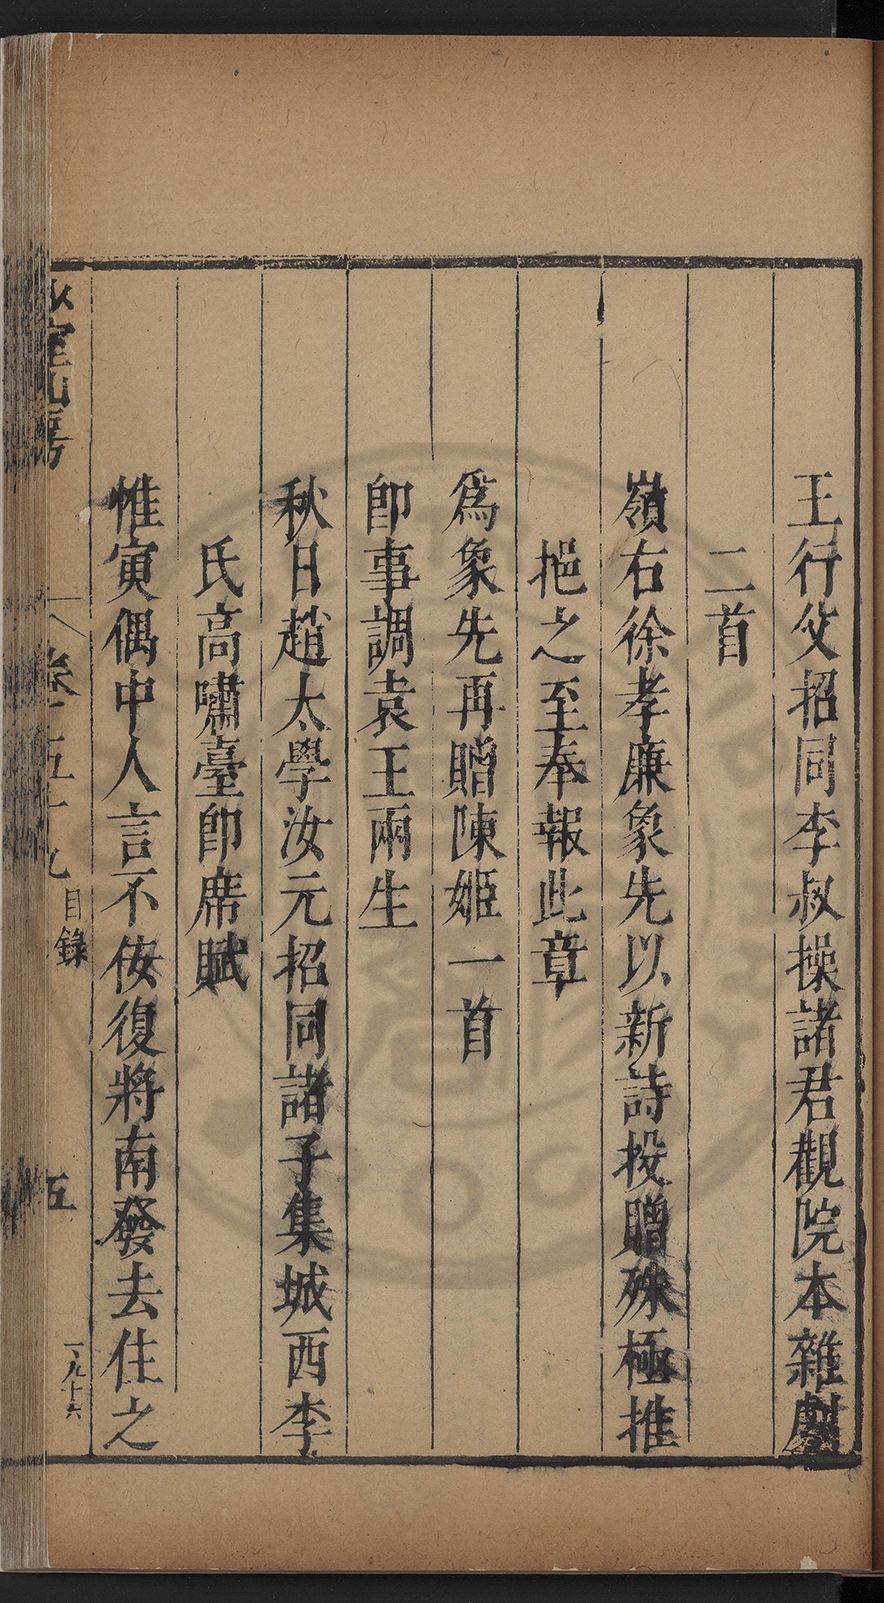 王行父招同李叔操諸君觀院本雜劇
二首
嶺右徐孝廉象先以新詩投贈殊極推
挹之至奉報此章
爲象先再贈陳姬一首
卽事調袁王兩生
秋日趙太學汝元招同諸子集城西李
氏高嘯臺卽席賦
惟寅偶中人言不侫復將南發去住之
室山房
卷之五十九
目錄
五